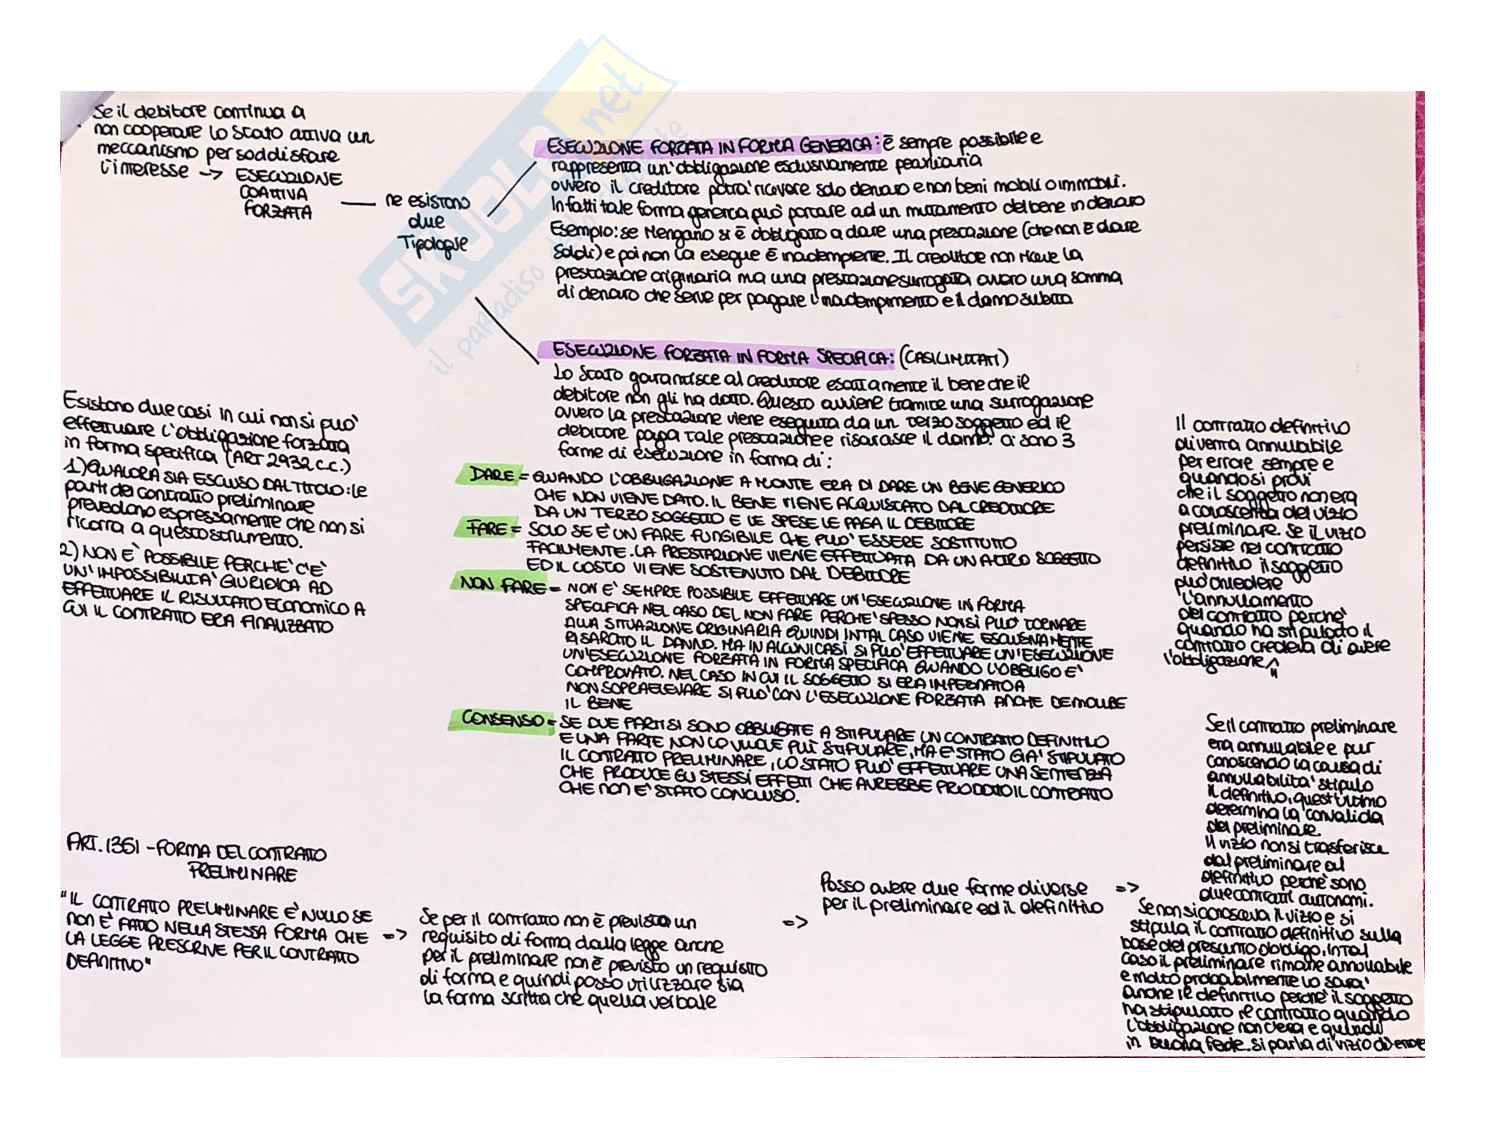 Se il debitore continua a
non cooperare lo Stato attiva un
meccanismo per soddisfare
l'interesse -> ESECUZIONE
COATTIVA
FORZATA
ne esistono
due
Tipologie
ESECUZIONE FORZATA IN FORMA GENERICA: è sempre possibile e
rappresenta un'obbligazione esclusivamente pecuniaria
ovvero il creditore potrà ricevere solo denaro e non beni mobili o immobili.
Infatti tale forma generica può portare ad un mutamento del bene in denaro
Esempio: se Mengano si è obbligato a dare una prestazione (che non è dare
soldi) e poi non la esegue è inadempiente. Il creditore non riceve la
prestazione originaria ma una prestazione surrogata ovvero una somma
di denaro che serve per pagare l'inadempimento e il danno subita
ESECUZIONE FORZATA IN FORMA SPECIFICA: (CASI LIMITATI)
Lo Stato garantisce al creditore esattamente il bene che il
debitore non gli ha dato. Questo avviene tramite una surrogazione
ovvero la prestazione viene eseguita da un terzo soggetto ed il
debitore paga tale prestazione e risarcisce il danno. Ci sono 3
forme di esecuzione in forma di:
DARE = QUANDO L'OBBLIGAZIONE A MONTE ERA DI DARE UN BENE GENERICO
CHE NON VIENE DATO. IL BENE VIENE ACQUISTATO DAL CREDITORE
DA UN TERZO SOGGETTO E LE SPESE LE PAGA IL DEBITORE
FARE = SOLO SE È UN FARE FUNGIBILE CHE PUO' ESSERE SOSTITUITO
FACILMENTE. LA PRESTAZIONE VIENE EFFETTUATA DA UN ALTRO SOGGETTO
ED IL COSTO VIENE SOSTENUTO DAL DEBITORE
NON FARE = NON E' SEMPRE POSSIBILE EFFETTUARE UN'ESECUZIONE IN FORMA
SPECIFICA NEL CASO DEL NON FARE PERCHE' SPESSO NON SI PUO' TORNARE
ALLA SITUAZIONE ORIGINARIA QUINDI IN TAL CASO VIENE ESCLUSIVAMENTE
RISARCITO IL DANNO. MA IN ALCUNI CASI SI PUO' EFFETTUARE UN'ESECUZIONE
UN'ESECUZIONE FORZATA IN FORMA SPECIFICA QUANDO L'OBBLIGO E'
COMPROVATO. NEL CASO IN CUI IL SOGGETTO SI ERA IMPEGNATO A
NON SOPRAELEVARE SI PUO' CON L'ESECUZIONE FORZATA ANCHE DEMOLIRE
IL BENE
CONSENSO = SE DUE PARTI SI SONO OBBLIGATE A STIPULARE UN CONTRATTO DEFINITIVO
E UNA PARTE NON LO VUOLE PIÙ STIPULARE, MA E' STATO GIA' STIPULATO
IL CONTRATTO PRELIMINARE, LO STATO PUO' EFFETTUARE UNA SENTENZA
CHE PRODUCE GLI STESSI EFFETTI CHE AVREBBE PRODOTTO IL CONTRATTO
CHE NON E' STATO CONCLUSO.
Esistono due casi in cui non si può
effettuare l'obbligazione forzata
in forma specifica (ART 2932 c.c.)
1) QUALORA SIA ESCLUSO DAL TITOLO: le
parti del contratto preliminare
prevedono espressamente che non si
ricorra a questo strumento.
2) NON E' POSSIBILE PERCHE' C'E'
UN'IMPOSSIBILITA' GIURIDICA AD
EFFETTUARE IL RISULTATO ECONOMICO A
CUI IL CONTRATTO ERA FINALIZZATO
Il contratto definitivo
diventa annullabile
per errore sempre e
quando si provi
che il soggetto non era
a conoscenza del vizio
preliminare. Se il vizio
persiste nel contratto
definitivo il soggetto
può chiedere
l'annullamento
del contratto perché
quando ha stipulato il
contratto credeva di avere
l'obbligazione
Se il contratto preliminare
era annullabile e pur
conoscendo la causa di
annullabilita' stipulo
il definitivo, quest'ultimo
determina la convalida
del preliminare.
Il vizio non si trasferisce
dal preliminare al
definitivo perché sono
due contratti autonomi.
Se non si conosceva il vizio e si
stipula il contratto definitivo sulla
base del presunto obbligo, in tal
caso il preliminare rimane annullabile
e molto probabilmente lo sara'
anche il definitivo perché il soggetto
ha stipulato il contratto quando
l'obbligazione non c'era e quindi
in buona fede. Si parla di vizio di errore
ART. 1351 - FORMA DEL CONTRATTO
PRELIMINARE
"IL CONTRATTO PRELIMINARE E' NULLO SE
NON E' FATTO NELLA STESSA FORMA CHE
LA LEGGE PRESCRIVE PER IL CONTRATTO
DEFINITIVO"
=> Se per il contratto non è previsto un
requisito di forma dalla legge anche
per il preliminare non è previsto un requisito
di forma e quindi posso utilizzare sia
la forma scritta che quella verbale
=> Posso avere due forme diverse
per il preliminare ed il definitivo =>
SKUOLA.net